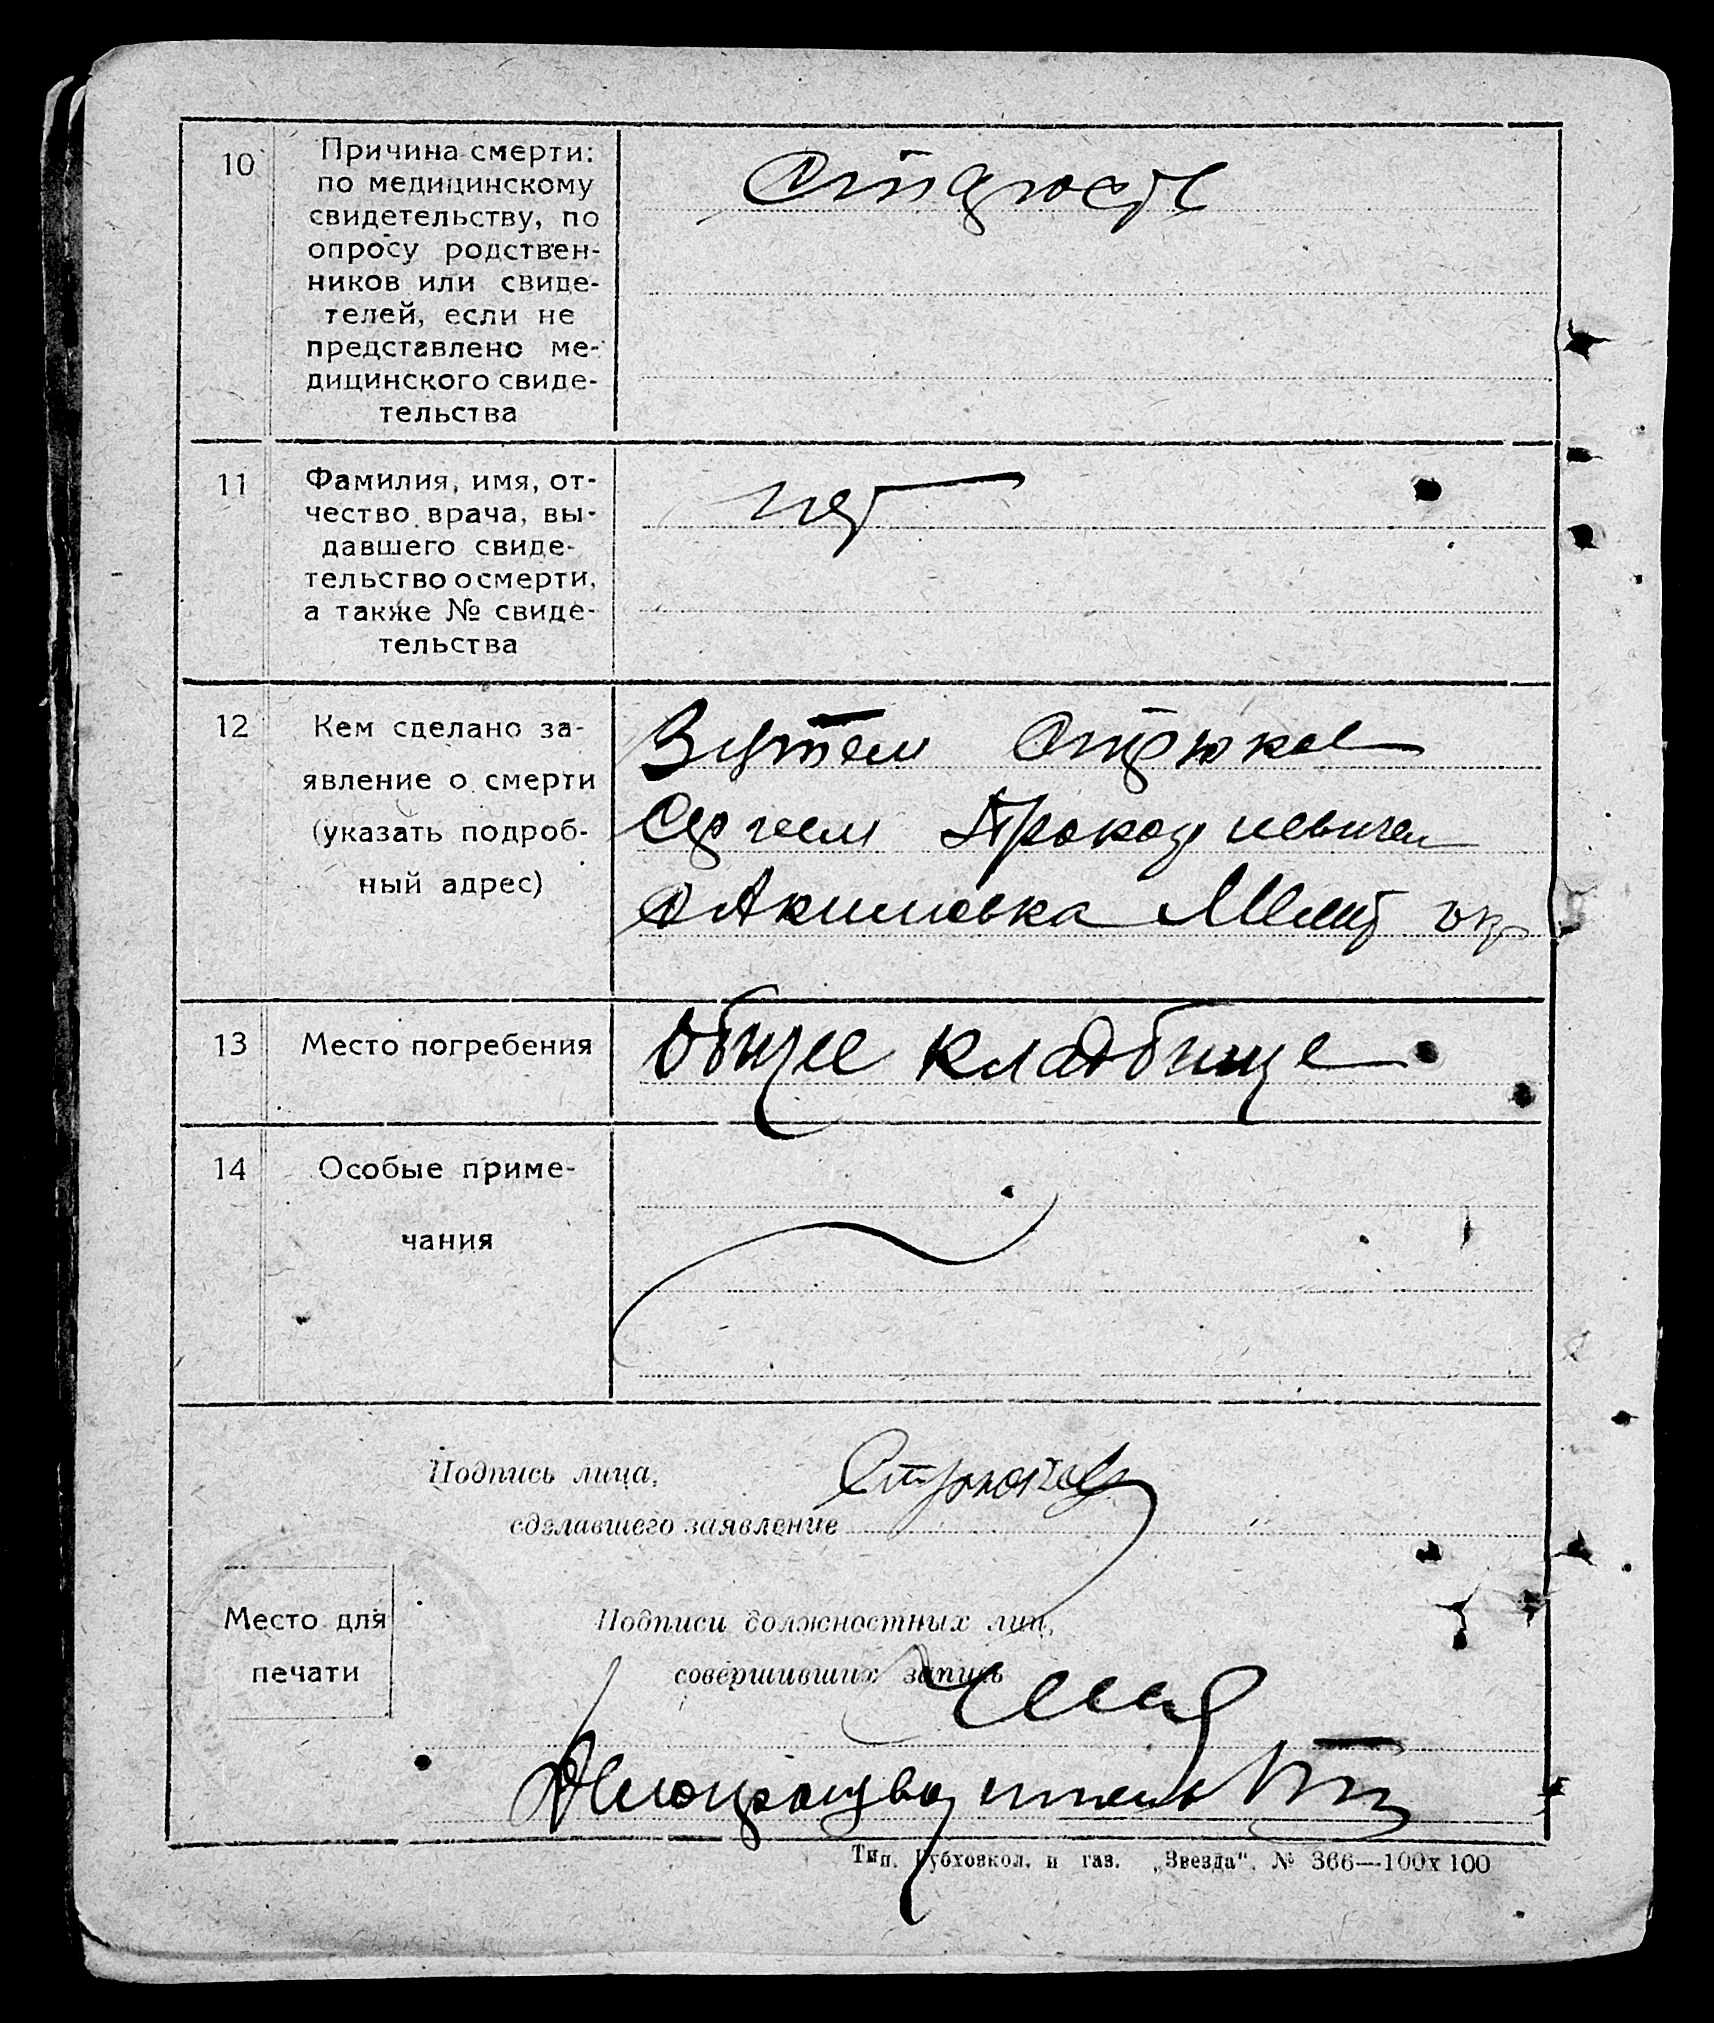 10
Причина смерти:
по медицинскому
свидетельству, по
опросу родствен-
ников или свиде-
телей, если не
представлено ме-
дицинского свиде-
тельства
Старость
11
Фамилия, имя, от-
чество врача, вы-
давшего свиде-
тельство о смерти,
а также № свиде-
тельства
нет
12
Кем сделано за-
явление о смерти
(указать подроб-
ный адрес)
Зятем Стрюков
Сергеем
с Акимовка Мелит окр
13
Место погребения
Общее кладбище
14
Особые приме-
чания
Подпись лица,
сделавшего заявление
Стрюков
Место для
печати
Подписи должностных лиц,
совершивших запись
Делопроизводитель
Тип. Рубховкол. и газ. „Звезда“. № 366—100х100